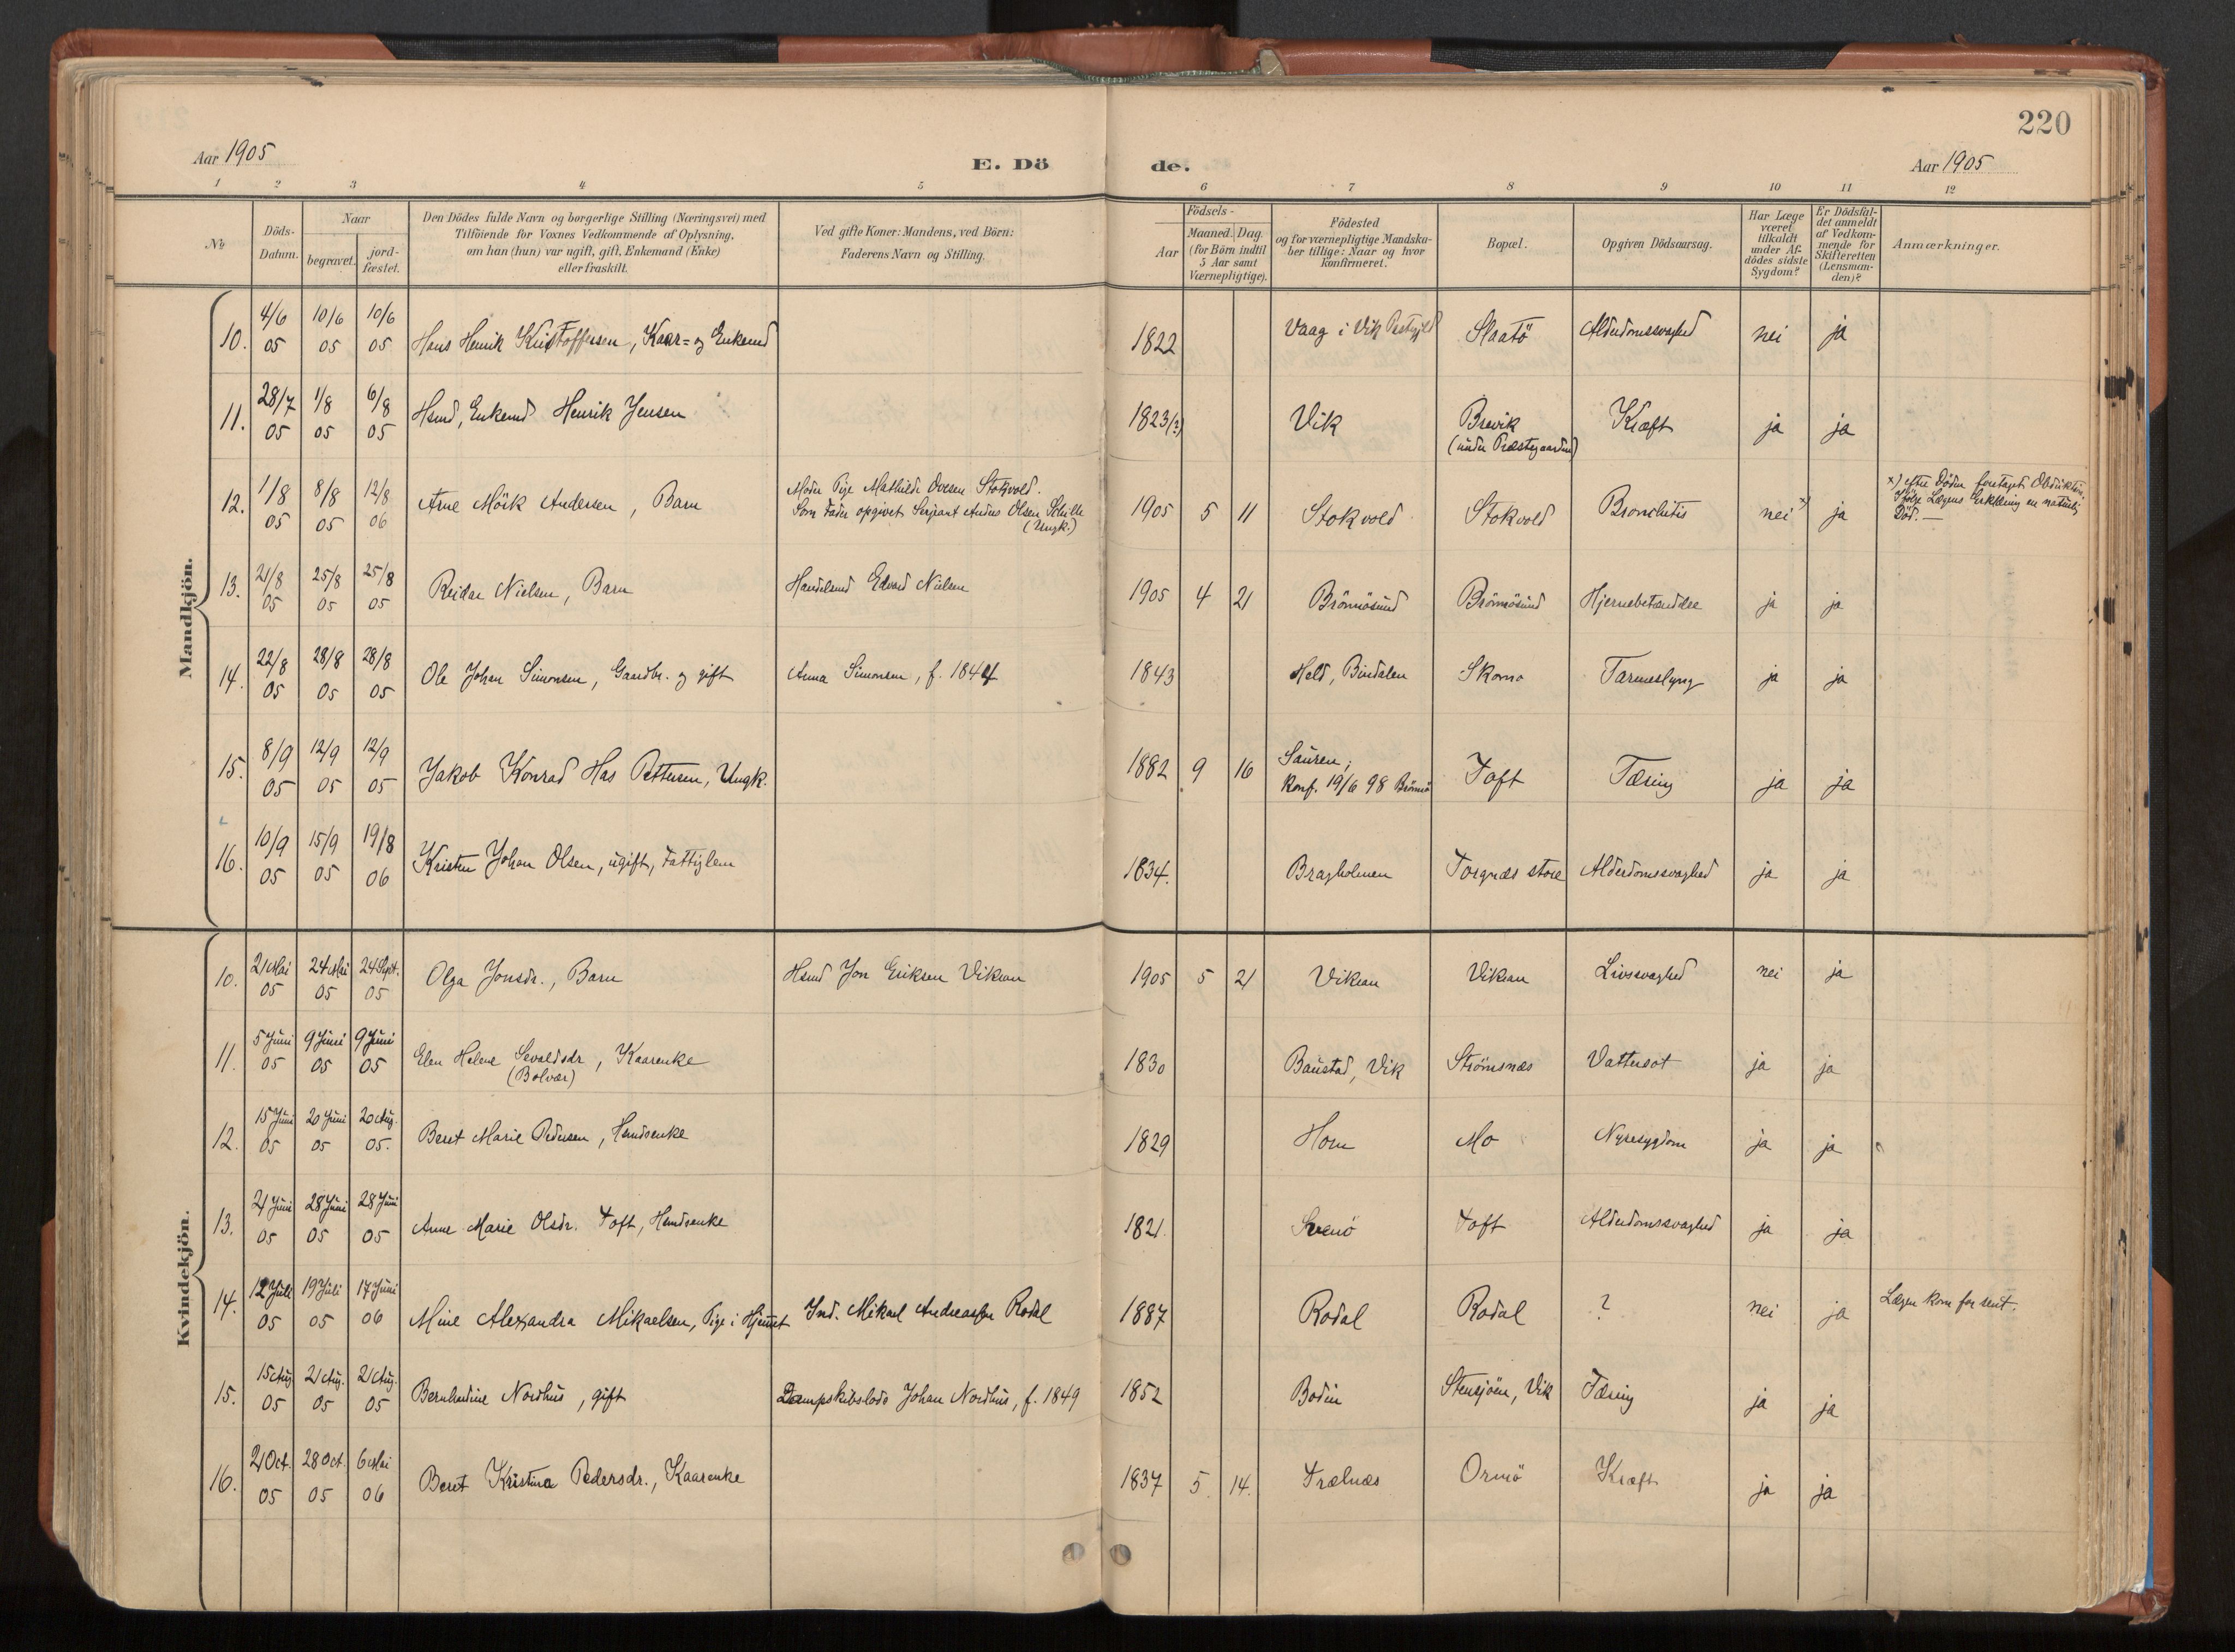 220
Aar 1905
E. Döde.
Aar 1905
1 2 3 4 5 6 7 8 9 10 11 12
No
Döds-Datum.
Naar
begravet.
jord-fæstet.
Den Dödes fulde Navn og borgerlige Stilling (Næringsvei) med
Tilföiende for Voxnes Vedkommende af Oplysning,
om han (hun) var ugift, gift, Enkemand (Enke)
eller fraskilt.
Ved gifte Koner: Mandens, ved Börn:
Faderens Navn og Stilling.
Födsels-
Aar
Maaned. Dag.
(for Börn indtil
5 Aar samt
Værnepligtige).
Födested
og for værnepligtige Mandska-
ber tillige: Naar og hvor
konfirmeret.
Bopæl.
Opgiven Dödsaarsag.
Har Læge
været
tilkaldt
under Af-
dödes sidste
Sygdom?
Er Dödsfal-
det anmeldt
af Vedkom-
mende for
Skifteretten
(Lensman-
den)?
Anmærkninger.
Mandkjön.
10. 4/6 05 10/6 05 10/6 05 Hans Henrik Kristoffersen, Kaar= og Enkemd 1822 Vaag i Vik Pestgjld Slaatö Alderdomssvaghed nei ja
11. 28/7 05 1/8 05 6/8 05 Hsmd, Enkemd Henrik Jensen 1823(?) Vik Brevik (under Præstegaarden) Kræft ja ja
12. 1/8 05 8/8 05 12/8 06 Arne Mörk Andersen, Barn Moder Pige Mathilde Ovesen Stokvold.
Som Fader opgivet Serjant Andus Olsen
(Ungk.)
1905 5 11 Stokvold Stokvold Bronchitis nei x) ja x) efter Döden foretaget Obduktion.
Ifölge Lægens Erklæring en naturlig
Död. —
13. 21/8 05 25/8 05 25/8 05 Reidar Nielsen, Barn Handelsmd Edvard Nielsen 1905 4 21 Brönnösund Brönnösund Hjernebetændelse ja ja
14. 22/8 05 28/8 05 28/8 05 Ole Johan Simonsen, Gaardbr. og gift Anna Simonsen, f. 1844 1843 Held, Bindalen Skomo Tarmeslyng ja ja
15. 8/9 05 12/9 05 12/9 05 Jakob Konrad Has Pettersen, Ungk. 1882 9 16 Sauren;
Konf. 19/6 98 Brönnö
Toft Tæring ja ja
16. 10/9 05 15/9 05 19/8 06 Kristen Johan Olsen, ugift, Fattiglem 1834. Bragholmen Torgnæs store Alderdomssvaghed ja ja
Kvindekjön.
10. 21 Mai 05 24 Mai 05 24 Sept. 05 Olga Jonsdr., Barn Hsmd Jon Eriksen Vikran 1905 5 21 Vikran Vikran Livssvaghed nei ja
11. 5 Juni 05 9 Juni 05 9 Juni 05 Elen Helene Sevaldsdr, Kaarenke
(Bolvær)
1830 Baustad, Vik Strömsnæs Vattersot ja ja
12. 15 Juni 05 20 Juni 05 20 Aug. 05. Beret Marie Pedersen, Hsmdsenke 1829 Horn Mo Nyresygdom ja ja
13. 21 Juni 05 28 Juni 05 28 Juni 05 Anne Marie Olsdr. Toft, Hsmdsenke 1821. Svenö Toft Alderdomssvaghed ja ja
14. 12 Juli 05 19 Juli 05 17 Juni 06 Mine Alexandra Mikaelsen, Pige i Hjemmet Ind. Mikael Andreassen Rodal 1887 Rodal Rodal ? nei ja Lægen kom for sent.
15. 15 Aug 05 21 Aug. 05 21 Aug. 05 Bernhardine Nordhus, gift Dampskibslods Johan Nordhus, f. 1849 1852 Bodin Stensjöen, Vik Tæring ja ja
16. 21 Oct. 05 28 Oct. 05 6 Mai 06 Beret Kristina Pedersdr., Kaarenke 1837 5. 14. Trælnæs Ormö Kræft ja ja